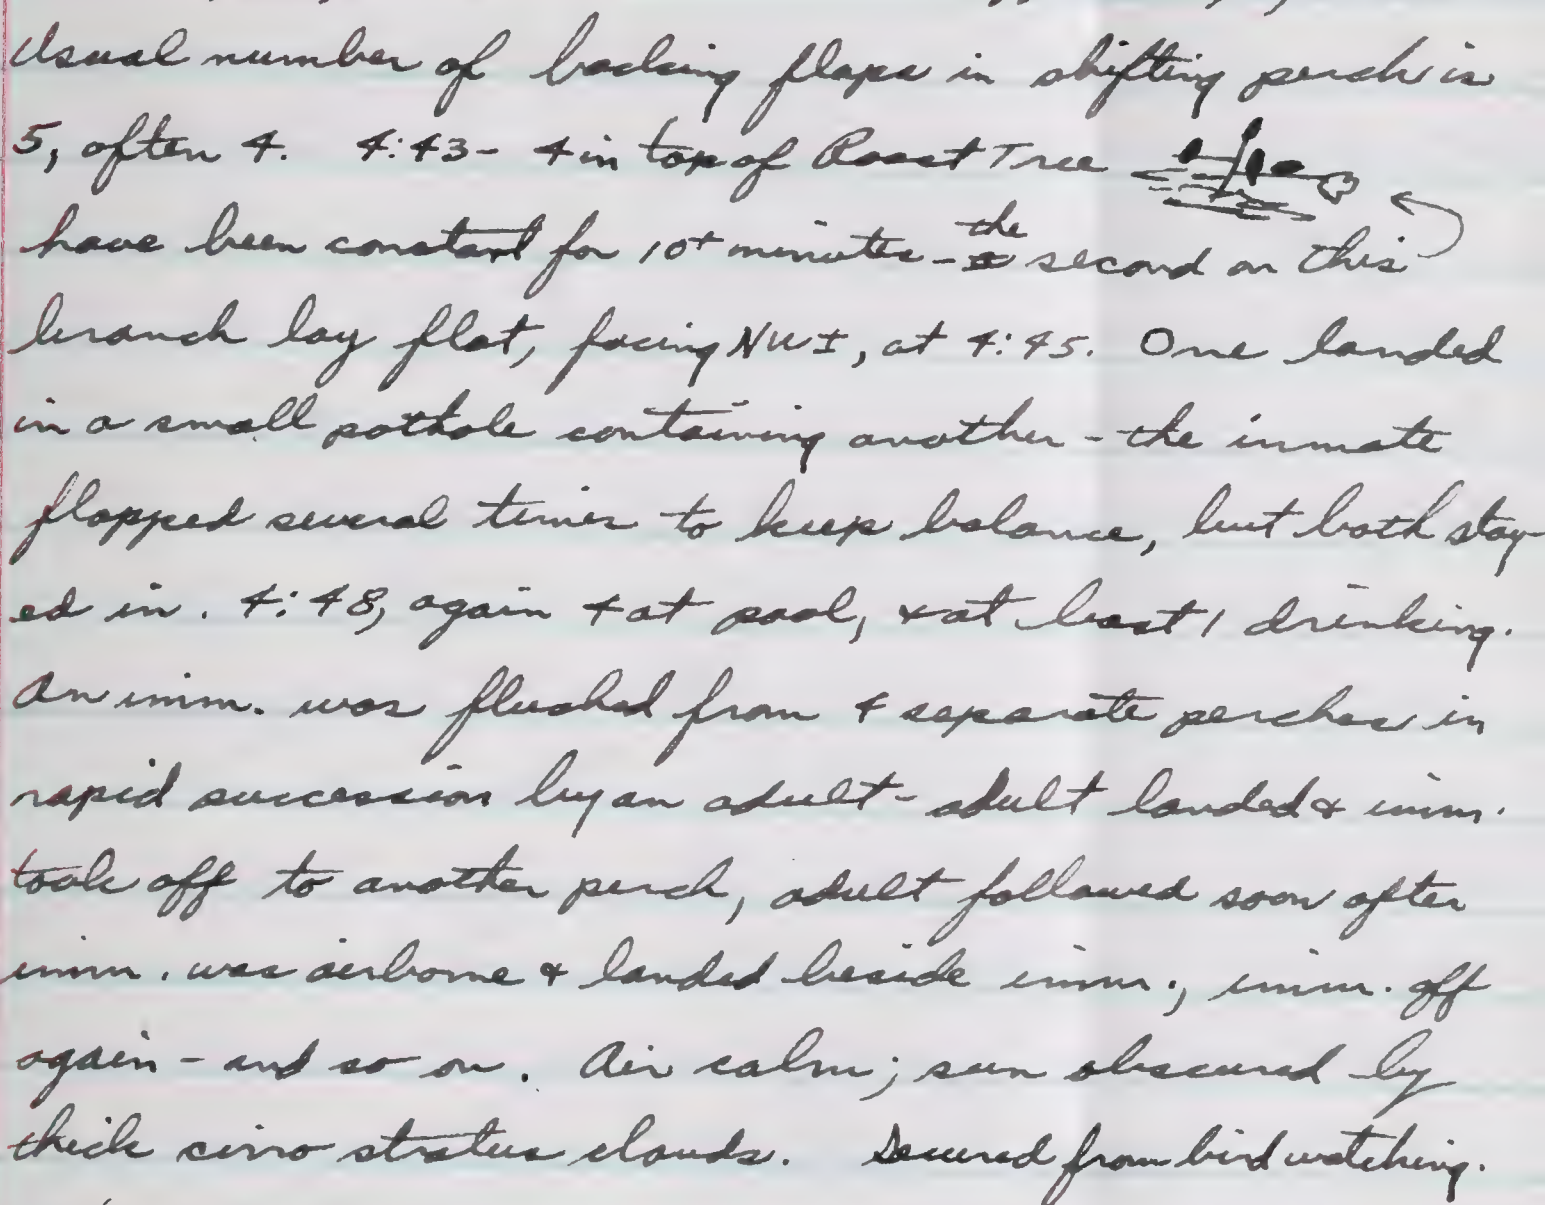 Usual number of backing flaps in shifting perch is
5, often 4. 4:43- 4 in top of Roost Tree
have been constant for 10+ minutes - the second on this
branch lay flat, facing NW±, at 4:45. One landed
in a small pothole containing another - the inmate
flapped several times to keep balance, but both stay-
ed in. 4:48, again 4 at pool, & at least 1 drinking.
An imm. was flushed from 4 separate perches in
rapid succession by an adult - adult landed & imm.
took off to another perch, adult followed soon after
imm. was airborne & landed beside imm., imm. off
again - and so on. Air calm; sun obscured by
thick cirro stratus clouds. Secured from bird watching.